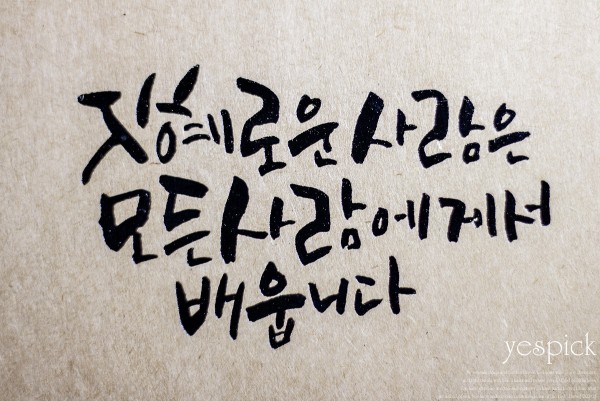 지혜로운 사람은
모든 사람에게서
배웁니다
yespick